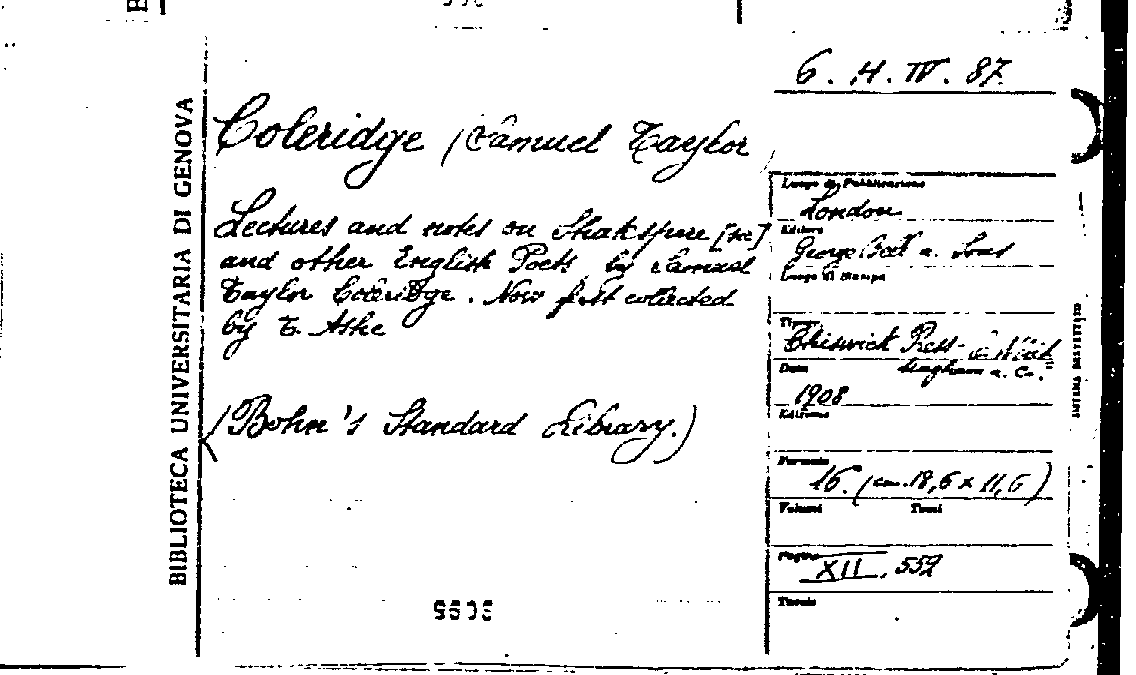 BIBLIOTECA UNIVERSITARIA DI GENOVA
Coleridge (Samuel Taylor
Lectures and notes on Shakspere [sic]
and other English Poets by Samuel
Taylor Coleridge. Now first collected
by T. Ashe
(Bohn's Standard Library.)
6. H. IV. 87.
Luogo di Pubblicazione
London
Editore
George Bell a. Sons
Luogo di stampa
Tipogr.
Chiswick Press - C. Whit
tingham a. Co.
Data
1908
Edizione
Formato
16. (cm. 18,6 x 11,6)
Volumi Tomi
Pagine
XII, 552